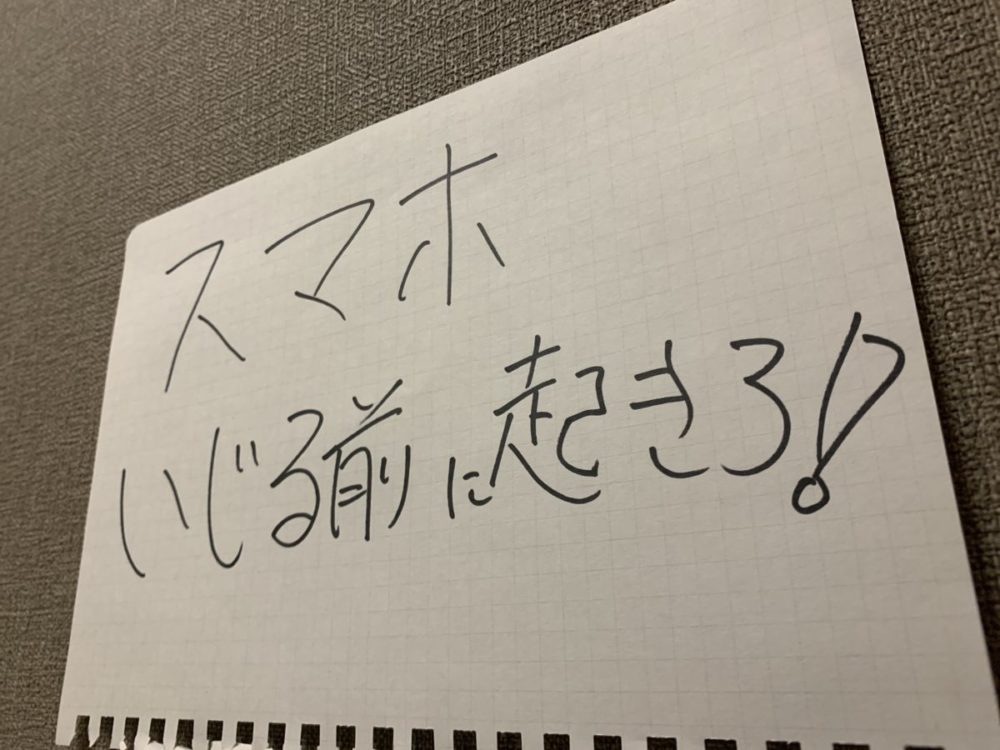 スマホ
いじる前に起きろ!